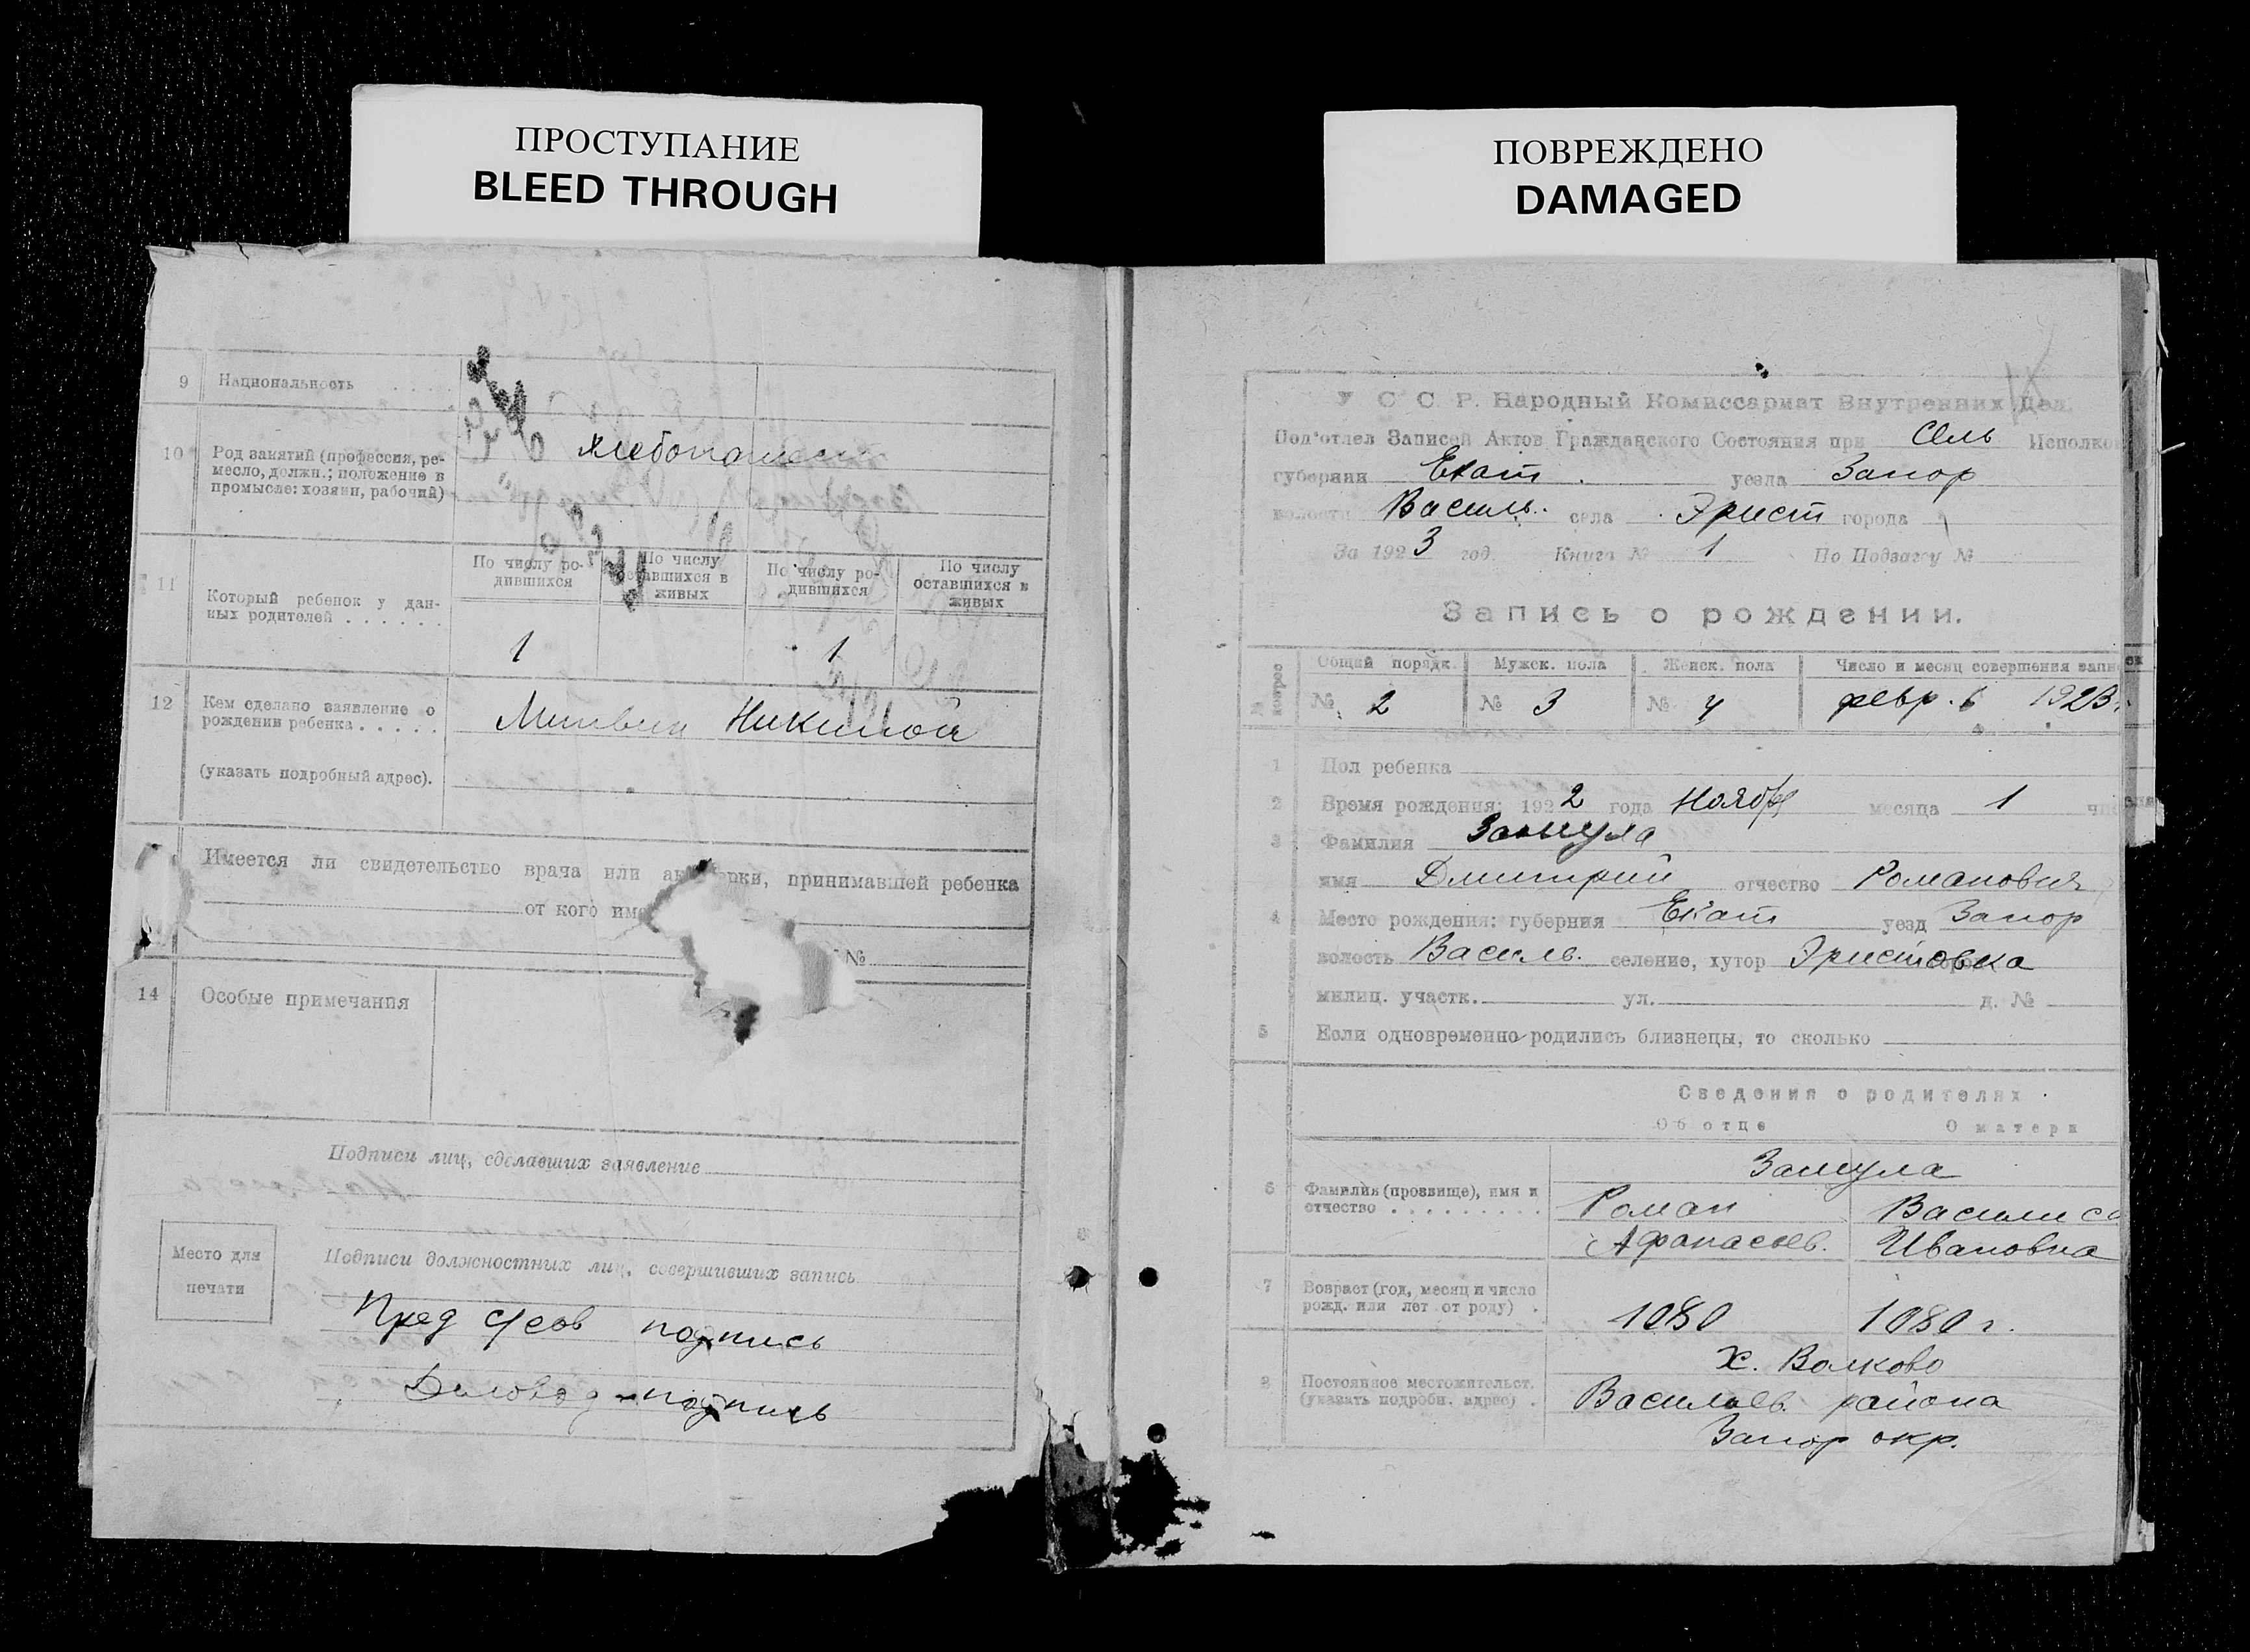 ПРОСТУПАНИЕ
BLEED THROUGH
9 Национальность . . . .
10 Род занятий (профессия, ре-
месло, должн.; положение в
промысле: хозяин, рабочий)
хлебопашест
11 Который ребенок у дан-
ных родителей . . . . . .
По числу ро-
дившихся
По числу
оставшихся в
живых
По числу ро-
дившихся
По числу
оставшихся в
живых
1 1
12 Кем сделано заявление о
рождении ребенка . . . . .
Никитой
(указать подробный адрес).
Имеется ли свидетельство врача или принимавшей ребенка
от кого
№
14 Особые примечания
Подписи лиц, сделавших заявление
Место для
печати
Подписи должностных лиц, совершивших запись
Пред подпись
Деловод подпись
ПОВРЕЖДЕНО
DAMAGED
У С С Р. Народный Комиссариат Внутренних Дел.
Под'отдел Записей Актов Гражданского Состояния при Сель Исполко
губернии Екат. уезда Запор
волости Василь. села Эрист города
За 1923 год. Книга № 1 По Подзагсу №
Запись о рождении.
Общий порядк. Мужск. пола Женск. пола Число и месяц совершения записи
№ 2 № 3 № 4 февр. 6 1923 г.
1 Пол ребенка
2 Время рождения: 1922 года Ноябр месяца 1
3 Фамилия Зашула
имя Дмитрий отчество Романович
4 Место рождения: губерния Екат уезд Запор
волость Василь. селение, хутор Эристовка
милиц. участк. ул. д. №
5 Если одновременно родились близнецы, то сколько
Сведения о родителях
Об отце О матери
6 Фамилия (прозвище), имя и
отчество . . . . . . . . .
Зашула
Роман Василиса
Афанасьев. Ивановна
7 Возраст (год, месяц и число
рожд. или лет от роду) .
1880 1880 г.
8 Постоянное местожительст.
(указать подробн. адрес) .
х. Волково
Васильев. района
Запор окр.